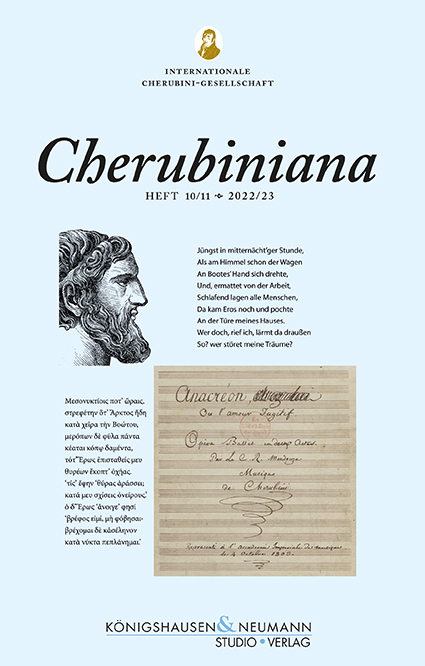 INTERNATIONALE
CHERUBINI-GESELLSCHAFT
Cherubiniana
HEFT 10/11 2022/23
Jüngst in mitternächt'ger Stunde,
Als am Himmel schon der Wagen
An Bootes' Hand sich drehte,
Und, ermattet von der Arbeit,
Schlafend lagen alle Menschen,
Da kam Eros noch und pochte
An der Türe meines Hauses.
Wer doch, rief ich, lärmt da draußen
So? wer störet meine Träume?
Μεσονυκτίοις ποτ' ὥραις,
στρεφέτην ὅτ' Ἄρκτος ἤδη
κατὰ χεῖρα τὴν Βοώτου,
μερόπων δὲ φῦλα πάντα
κέαται κόπῳ δαμέντα,
τότ' Ἔρως ἐπισταθείς μευ
θυρέων ἔκοπτ' ὀχῆας.
'τίς' ἔφην 'θύρας ἀράσσει;
κατά μευ σχίσεις ὀνείρους.'
ὁ δ' Ἔρως 'ἄνοιγε' φησί
'βρέφος εἰμί, μὴ φόβησαι·
βρέχομαι δὲ κἀσέληνον
κατὰ νύκτα πεπλάνημαι.'
Anacréon,
Ou l'amour Fugitif
Opéra Ballet en deux Actes.
Par Le C. R. Mendouze
Musique
de Cherubini
Représenté à l'académie Impériale de musique
le 4 octobre 1803
KÖNIGSHAUSEN & NEUMANN
STUDIO • VERLAG